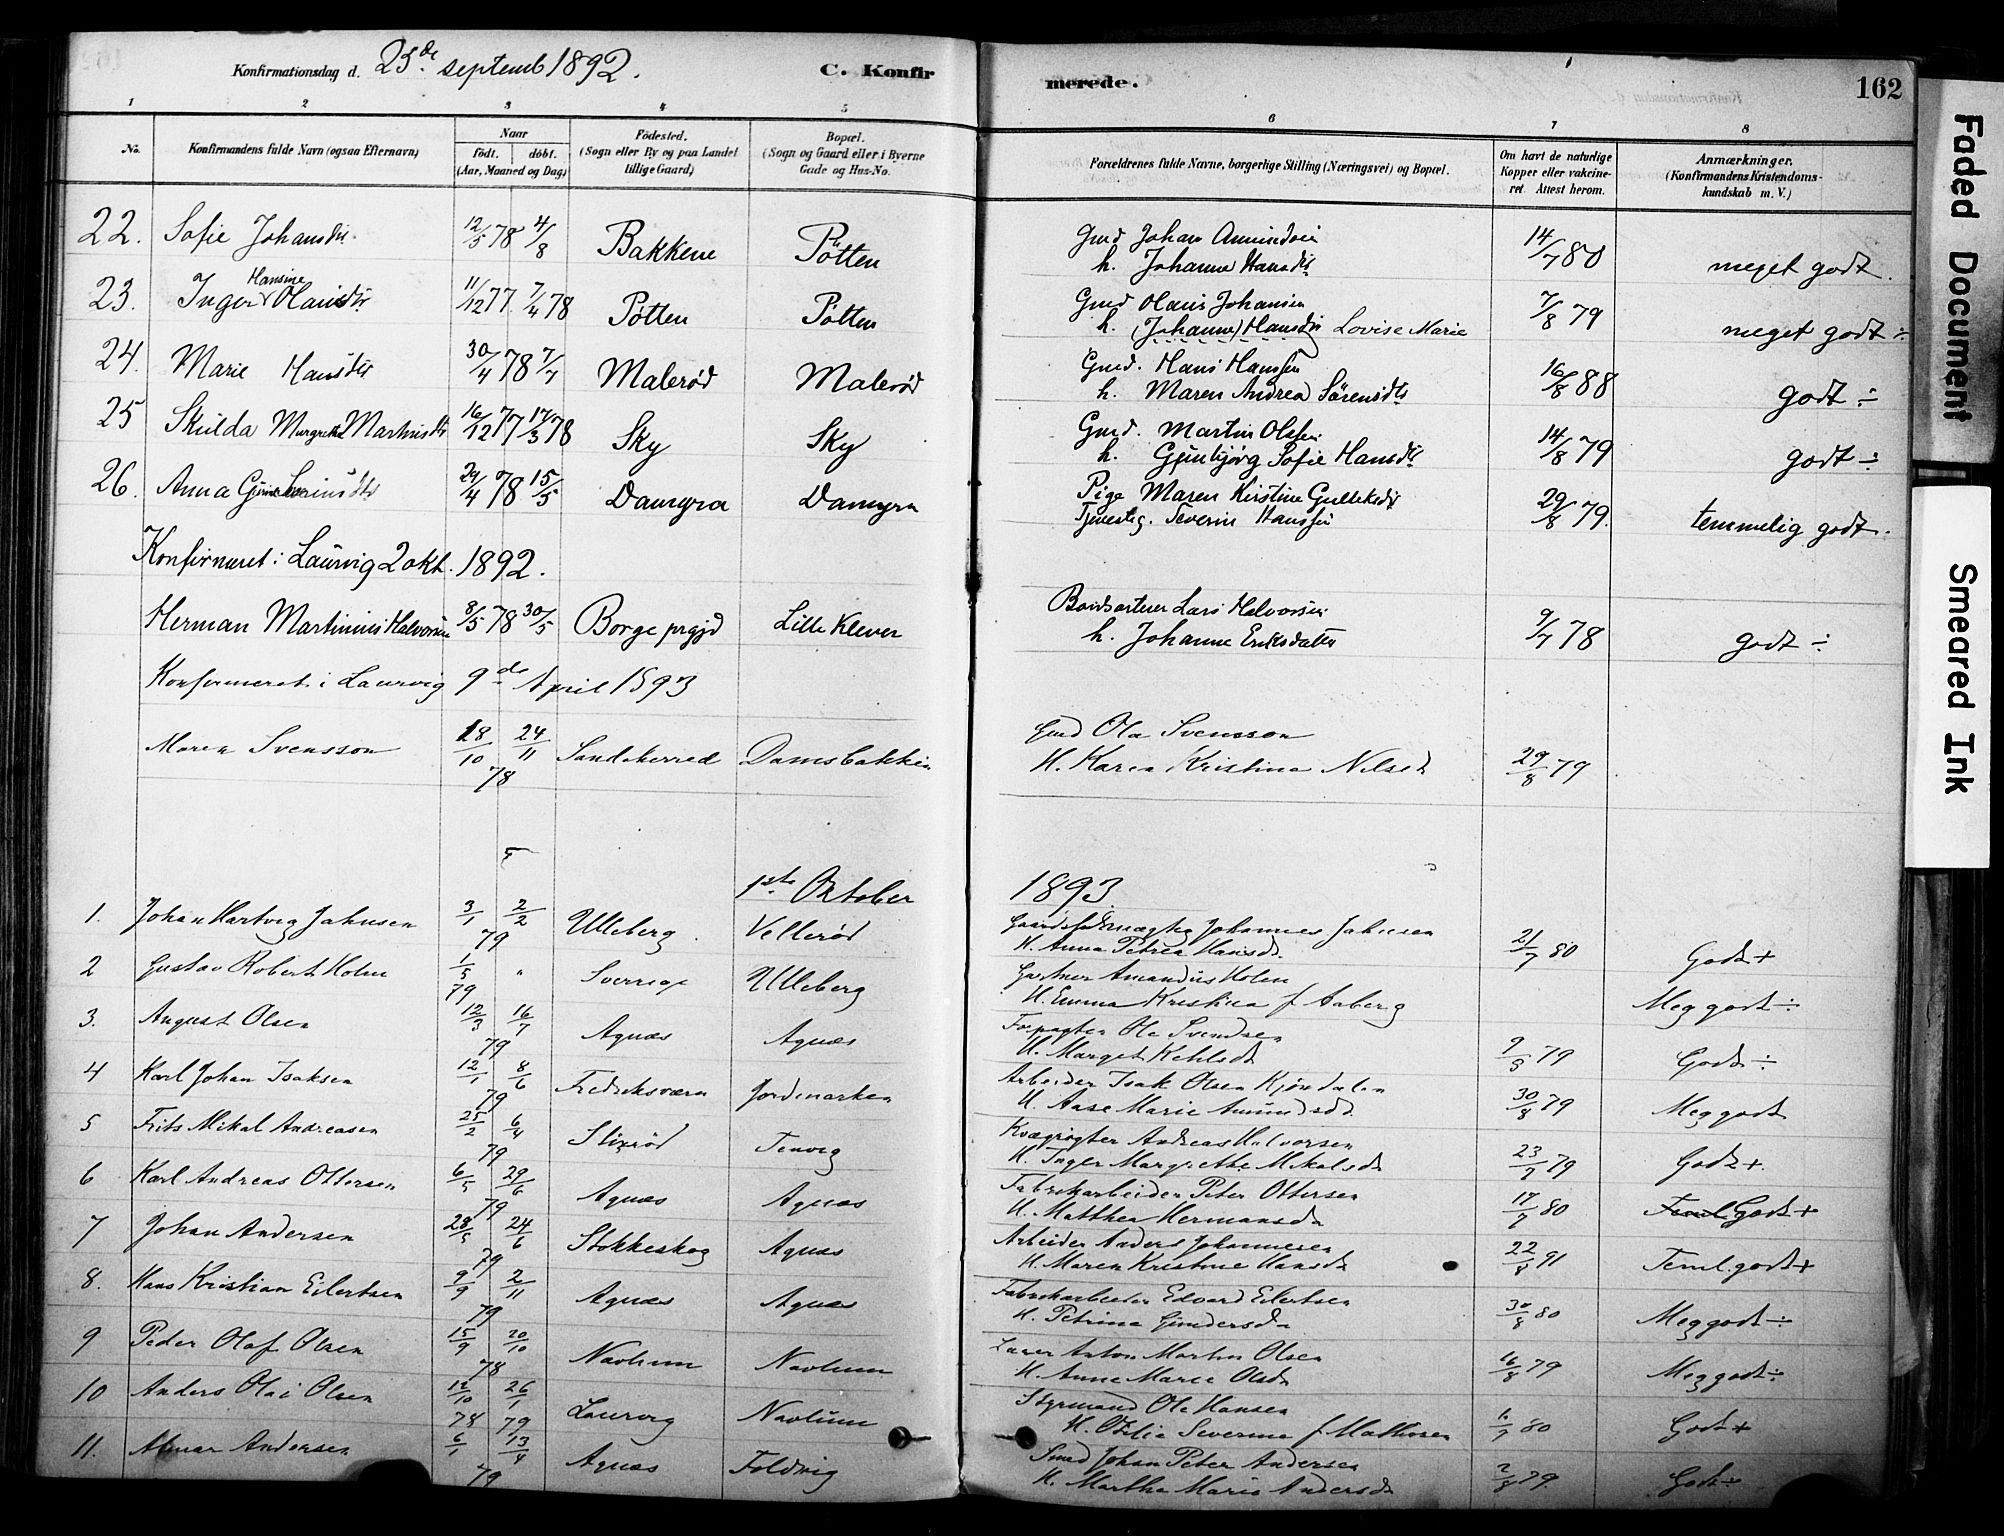 Konfirmationsdag d. 25de septemb 1892. C. Konfirmerede. 162
1 2 3 4 5 6 7 8
No. Konfirmandens fulde Navn (ogsaa Efternavn) Naar født. døbt. (Aar, Maaned og Dag) Födested. (Sogn eller By og paa Landet tillige Gaard) Bopæl. (Sogn og Gaard eller i Byerne Gade og Hus-No. Forældrenes fulde Navne, borgerlige Stilling (Næringsvei) og Bopæl. Om havt de naturlige Kopper eller vakcineret. Attest herom. Anmærkninger. (Konfirmandens Kristendomskundskab m. V.)
22. Sofie Johansdtr. 12/5 78 4/8 Bakkene Pøtten Gmd Johan Amundsen 14/7 80 meget godt.
h. Johanne Hansdtr
23. Inger Hansine Hansdtr 11/12 77 7/4 78 Pøtten Pøtten Gmd Hans Johansen 7/8 79 meget godt ÷
h. (Johanne) Hansdtr Lovise Marie
24. Marie Hansdtr 30/4 78 7/7 Malerød Malerød Gmd. Hans Hansen 16/8 88 godt ÷
h. Maren Andrea Sörensdtr
25 Skulda Margrethe Martinsdtr 16/12 77 17/3 78 Sky Sky Gmd. Martin Olsen 14/8 79 godt ÷
h. Gunbjørg Sofie Hansdtr
26. Anna 29/4 78 15/5 Damyra Damyra Pige Maren Kirstine Gulliksdtr 29/8 79. temmelig godt.
Tjenestg. Severin Hansen
Konfirmeret i Laurvig 2 okt. 1892.
Herman Martinius Halvorsen 8/5 78 30/5 Borge prgjd Lille Klever Lars Halvorsen 9/7 78 godt ÷
h. Johanne Eriksdatter
Konfirmeret i Laurvig 9de April 1893
Maren Svensson 18/10 24/11 78 Sandeherred Damsbakken Gmd Ola Svensson
H. Karen Kristine Nilsd 29/8 79
1ste Oktober 1893.
1. Johan Hartvig Jahnsen 3/1 2/2 79 Ulleberg Vellerød Gaardsfuldmægtig Johannes Jahnsen 21/7 80 Godt +
H. Anna Petrea Hansd.
2 Gustav Robert Holm 1/5 79 " Sverrige Ulleberg Gartner Amandus Holm Meg godt ÷
H. Emma Kristina f. Aaberg
3. August Olsen 12/3 16/7 79 Agnæs Agnæs Forpagter Ole Svendsen 9/8 79 Godt ÷
H. Marget Kehlsd
4 Karl Johan Isaksen 12/1 8/6 79 Fredriksværn Jordmarken Arbeider Isak Olsen Kjøndalen 30/8 79 Meg godt
H. Aase Marie Amundsd.
5 Frits Mikal Andreasen 25/2 6/4 79 Slixrød Tenvig Kvægrøgter Andreas Halvorsen 23/7 79 Godt +
H. Inger Margrethe Mikalsd
6 Karl Andreas Ottersen 6/5 29/6 79 Agnæs Agnæs Fabrikarbeider Peter Ottersen 17/7 80 Teml Godt +
H. Matthea Hermansd
7 Johan Andersen 28/5 24/6 79 Stokkeskog Agnæs Arbeider Anders Johannesen 22/8 91 Teml. godt +
H. Maren Kristine Hansd
8. Hans Kristian Eilertsen 9/9 2/11 79 Agnæs Agnæs Fabrikarbeider Edvard Eilertsen 30/8 80 Meg godt ÷
H. Petrina Gundersd
9 Peder Olaf Olsen 15/9 20/10 78 Navlum Navlum Anton Martin Olsen 16/8 79 Meg godt ÷
H. Anne Marie Olsd
10 Anders Olai Olsen 12/10 78 26/1 79 Laurvig Navlum Styrmand Ole Hansen 6/7 80 Godt +
H. Otilia Severine f. Mathisen
11. Almar Andersen 6/1 13/4 79 Agnæs Foldvig Smed Johan Peter Andersen 2/8 79 Godt ÷
H. Martha Marie Andersd
Faded Document
Smeared Ink